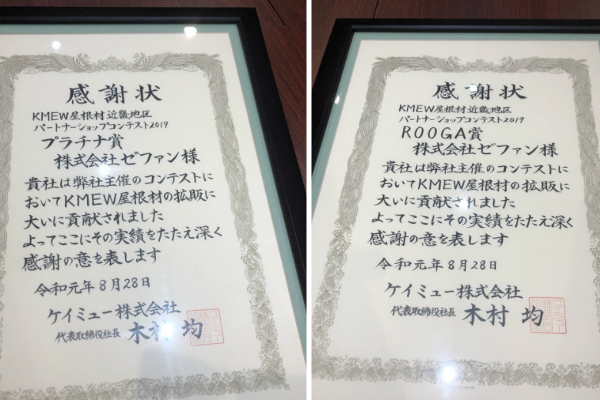 感謝状
KMEW屋根材近畿地区
パートナーショップコンテスト2019
プラチナ賞
株式会社ゼファン様
貴社は弊社主催のコンテストに
おいてKMEW屋根材の拡販に
大いに貢献されました
よってここにその実績をたたえ深く
感謝の意を表します
令和元年8月28日
ケイミュー株式会社
代表取締役社長 木村 均
感謝状
KMEW屋根材近畿地区
パートナーショップコンテスト2019
ROOGA賞
株式会社ゼファン様
貴社は弊社主催のコンテストに
おいてKMEW屋根材の拡販に
大いに貢献されました
よってここにその実績をたたえ深く
感謝の意を表します
令和元年8月28日
ケイミュー株式会社
代表取締役社長 木村 均